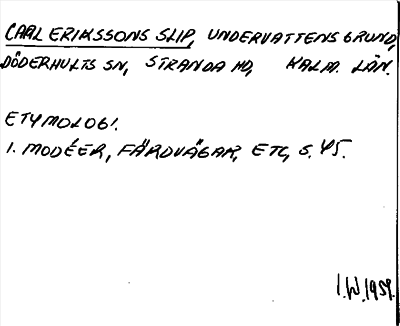 CARL ERIKSSONS SLIP, UNDERVATTENSGRUND,
DÖDERHULTS SN, STRANDA HD, KALM. LÄN.
ETYMOLOGI.
1. MODÉER, FÄRDVÄGAR, ETC, S. 45.
I.W. 1959.